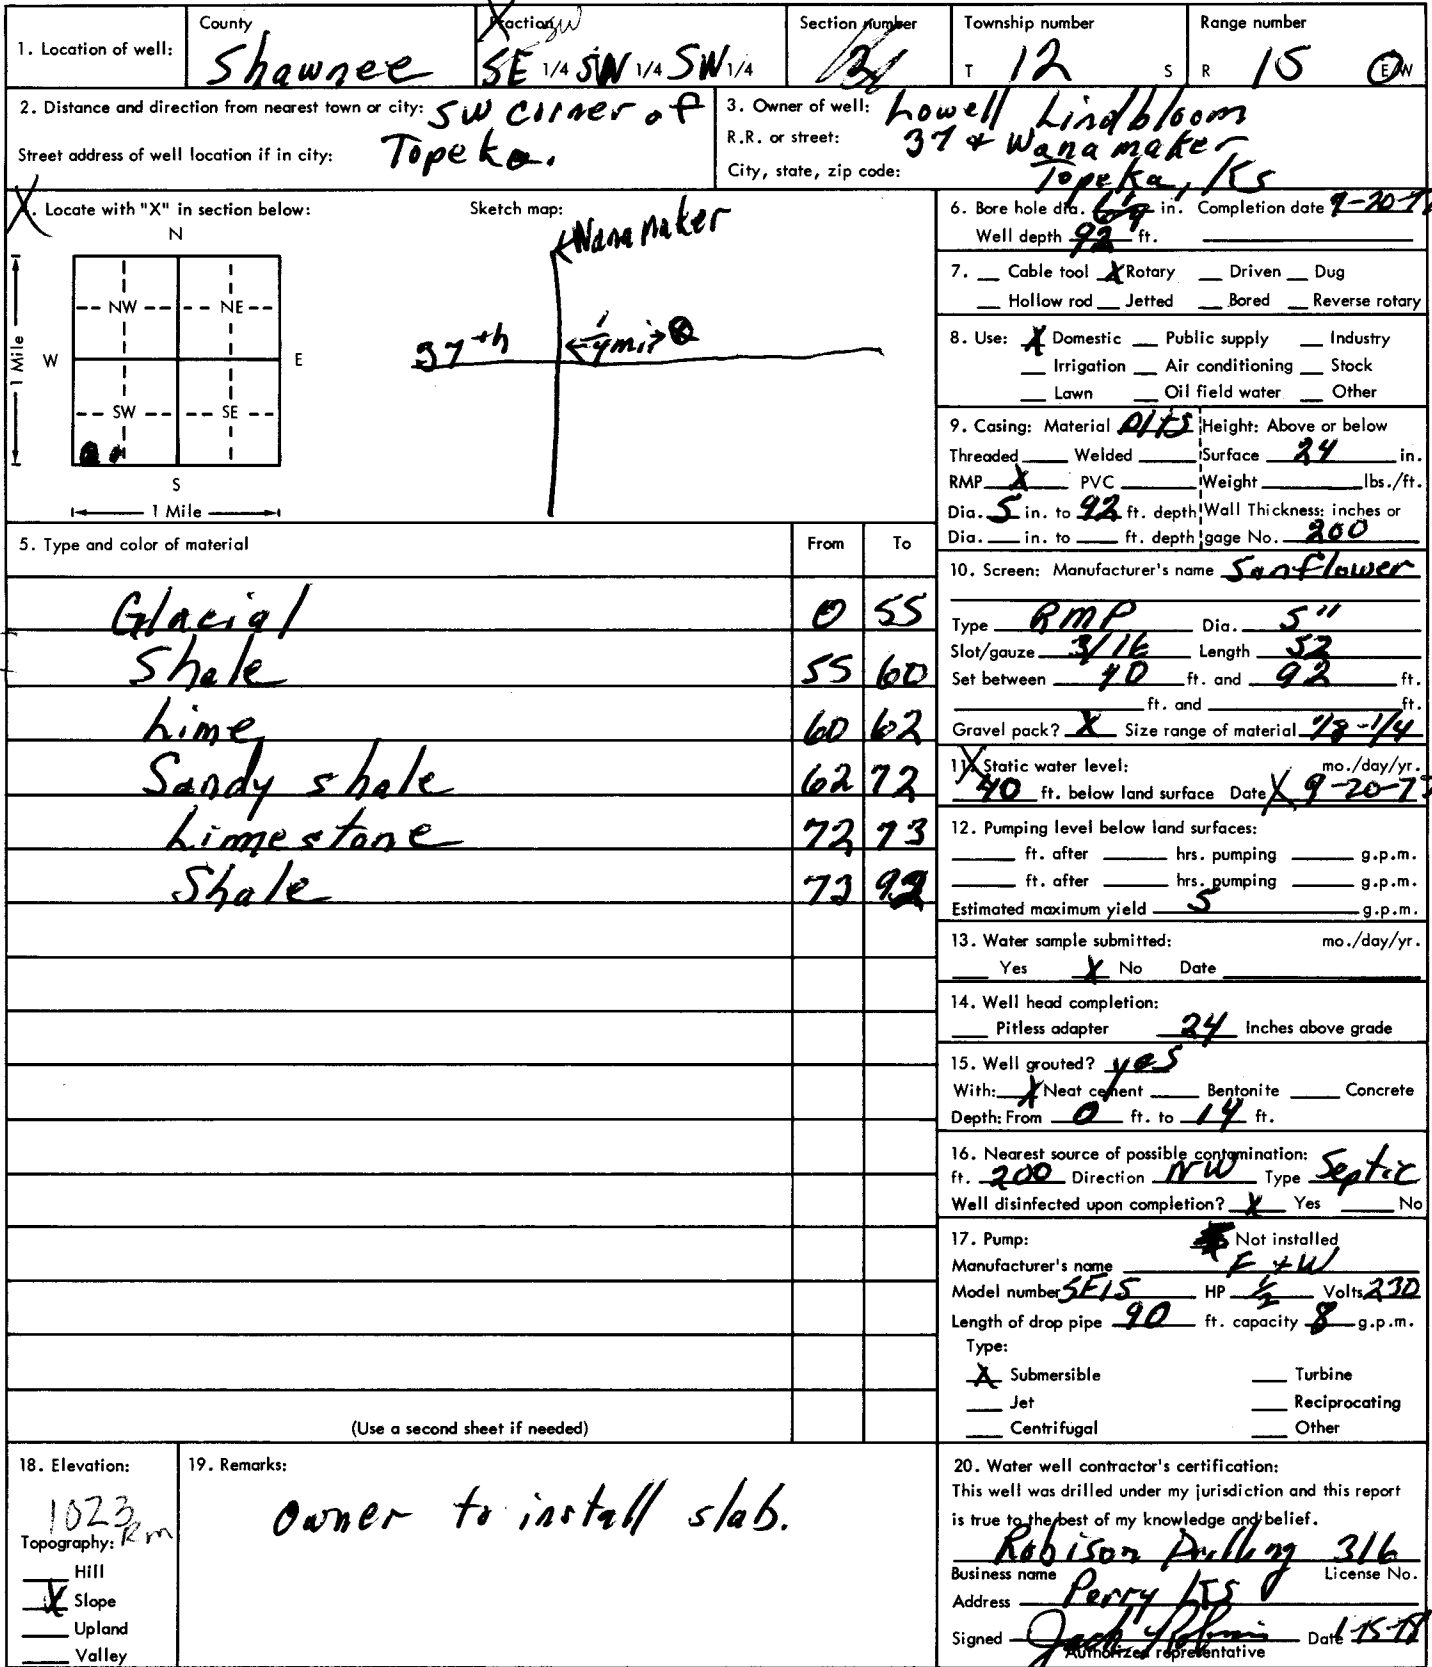 County
Fraction SW
Section number
Township number
Range number
1. Location of well:
Shawnee
SE 1/4 SW 1/4 SW 1/4
T 12 S
R 15 E/W
2. Distance and direction from nearest town or city: SW corner of
Topeka.
Street address of well location if in city:
3. Owner of well: Lowell Lindbloom
R.R. or street: 37 & Wanamaker
City, state, zip code: Topeka, Ks
4. Locate with "X" in section below:
Sketch map:
N
NW NE
W E
SW SE
S
1 Mile
1 Mile
Wanamaker
37th
1/4 mi
5. Type and color of material
From To
Glacial 0 55
Shale 55 60
Lime 60 62
Sandy shale 62 72
Limestone 72 73
Shale 73 92
(Use a second sheet if needed)
6. Bore hole dia. in. Completion date 9-20-
Well depth 92 ft.
7. Cable tool X Rotary Driven Dug
Hollow rod Jetted Bored Reverse rotary
8. Use: X Domestic Public supply Industry
Irrigation Air conditioning Stock
Lawn Oil field water Other
9. Casing: Material Height: Above or below
Threaded Welded Surface 24 in.
RMP X PVC Weight lbs./ft.
Dia. 5 in. to 92 ft. depth Wall Thickness: inches or
Dia. in. to ft. depth gage No. 200
10. Screen: Manufacturer's name Sunflower
Type RMP Dia. 5"
Slot/gauze 3/16 Length 52
Set between 40 ft. and 92 ft.
ft. and ft.
Gravel pack? X Size range of material 1/8-1/4
11. Static water level: mo./day/yr.
40 ft. below land surface Date 9-20-7
12. Pumping level below land surfaces:
ft. after hrs. pumping g.p.m.
ft. after hrs. pumping g.p.m.
Estimated maximum yield 5 g.p.m.
13. Water sample submitted: mo./day/yr.
Yes X No Date
14. Well head completion:
Pitless adapter 24 Inches above grade
15. Well grouted? yes
With: X Neat cement Bentonite Concrete
Depth: From 0 ft. to 14 ft.
16. Nearest source of possible contamination:
ft. 200 Direction NW Type Septic
Well disinfected upon completion? X Yes No
17. Pump: Not installed
Manufacturer's name F + W
Model number SF15 HP 1/2 Volts 230
Length of drop pipe 90 ft. capacity 8 g.p.m.
Type:
X Submersible Turbine
Jet Reciprocating
Centrifugal Other
18. Elevation:
1023 Rm
Topography:
Hill
X Slope
Upland
Valley
19. Remarks:
Owner to install slab.
20. Water well contractor's certification:
This well was drilled under my jurisdiction and this report
is true to the best of my knowledge and belief.
Robison Drilling 316
Business name License No.
Address Perry KS
Signed Date 1-15-78
Authorized representative